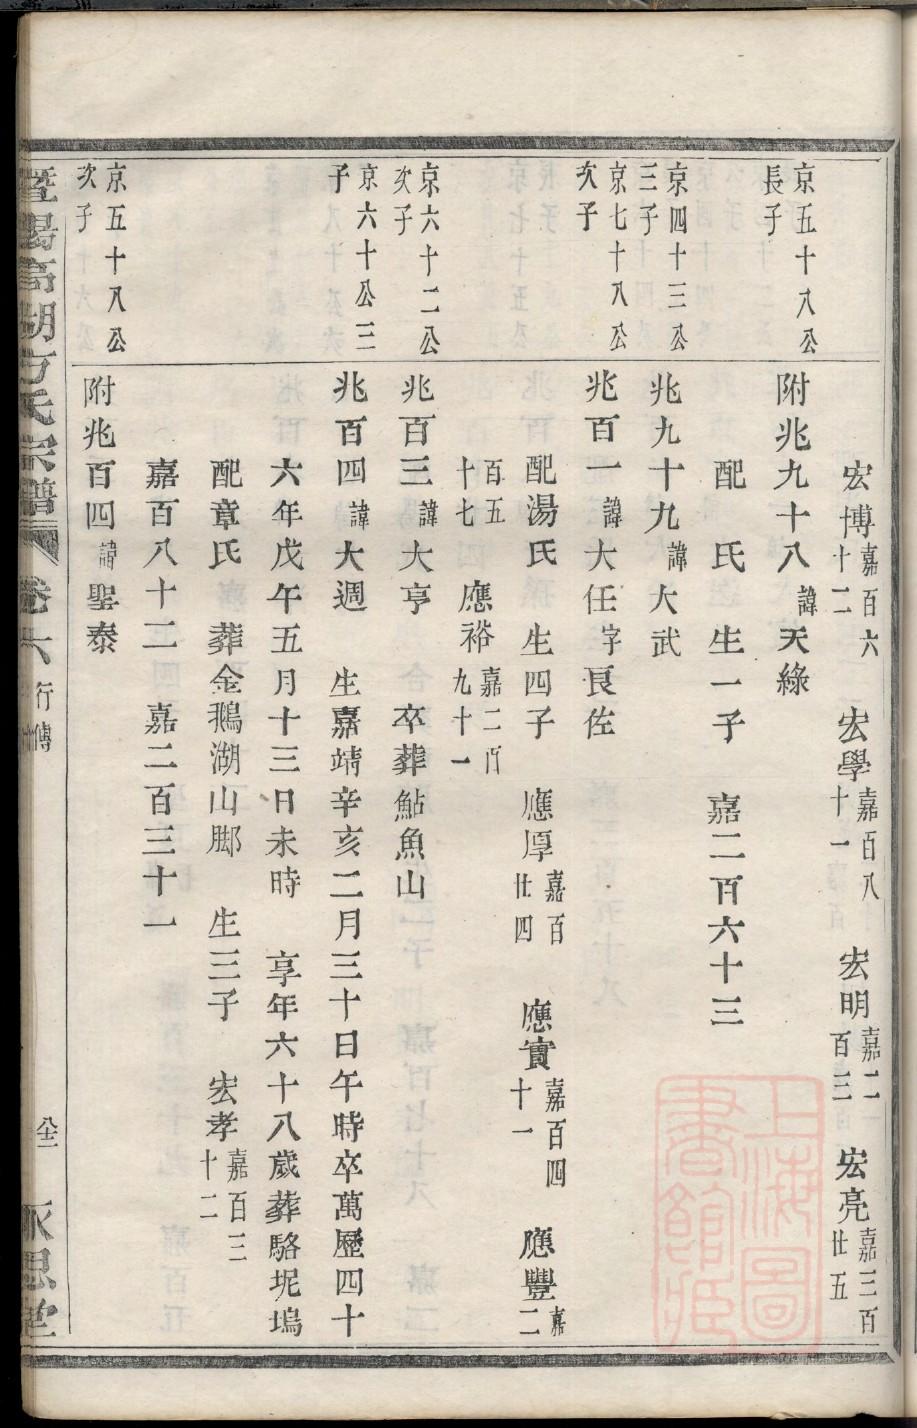 宏博嘉百六十二　宏學嘉百八十一　宏明嘉二百三　宏亮嘉三百廿五
京五十八公長子
附兆九十八諱天綠
配　氏　生一子　嘉二百六十三
京四十三公三子
兆九十九諱大武
京七十八公次子
兆百一諱大任字良佐
配湯氏　生四子　應厚嘉百廿四　應實嘉百四十一　應豐嘉二
百五十七　應裕嘉二百九十一
京六十二公次子
兆百三諱大亨　卒葬鮎魚山
京六十公三子
兆百四諱大週　生嘉靖辛亥二月三十日午時卒萬歷四十
六年戊午五月十三日未時　享年六十八歲葬駱坭塢
配章氏　葬金鵝湖山腳　生三子　宏孝嘉百三十二
嘉百八十二　嘉二百三十一
京五十八公次子
附兆百四諱聖泰
暨陽高湖方氏宗譜　卷六　行傳　永思堂
上海圖書館藏